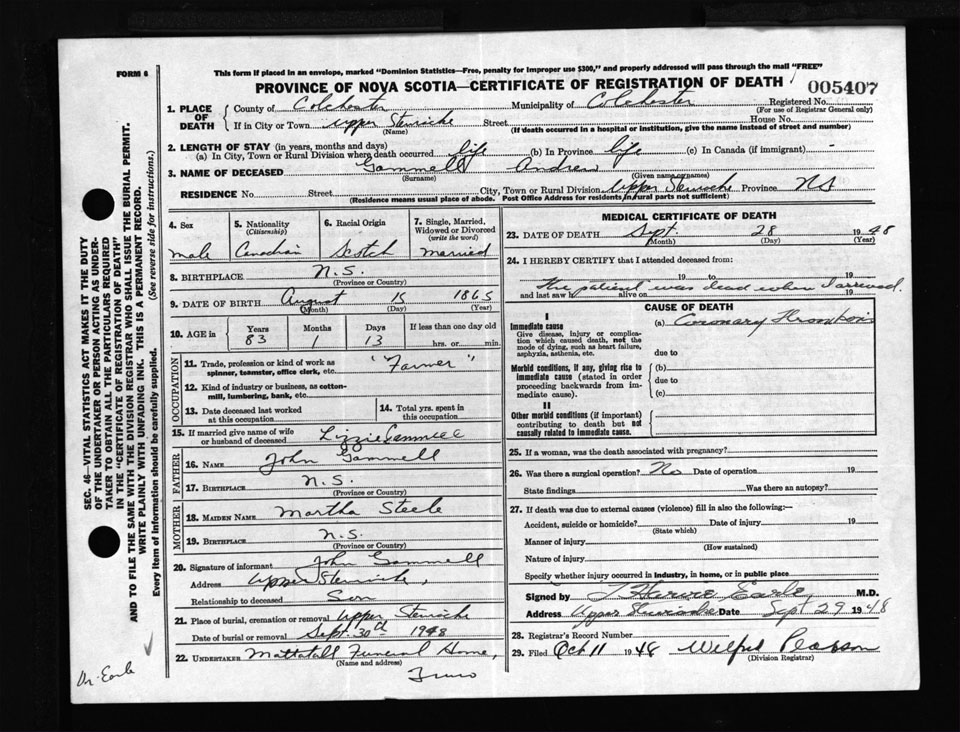 FORM 6
This form if placed in an envelope, marked "Dominion Statistics—Free, penalty for improper use $300," and properly addressed will pass through the mail "FREE"
PROVINCE OF NOVA SCOTIA—CERTIFICATE OF REGISTRATION OF DEATH
005407
1. PLACE OF DEATH
County of Colchester Municipality of Colchester Registered No.
(For use of Registrar General only)
If in City or Town Upper Stewiacke Street House No.
(Name) (If death occurred in a hospital or institution, give the name instead of street and number)
2. LENGTH OF STAY (in years, months and days)
(a) In City, Town or Rural Division where death occurred life (b) In Province life (c) In Canada (if immigrant) -
3. NAME OF DECEASED Gammell Andrew
(Surname) (Given name or names)
RESIDENCE No. Street City, Town or Rural Division Upper Stewiacke Province NS
(Residence means usual place of abode. Post Office Address for residents in rural parts not sufficient)
4. Sex
male
5. Nationality
(Citizenship)
Canadian
6. Racial Origin
Scotch
7. Single, Married, Widowed or Divorced
(write the word)
Married
8. BIRTHPLACE N.S.
(Province or Country)
9. DATE OF BIRTH August 15 1865
(Month) (Day) (Year)
10. AGE in Years Months Days If less than one day old
83 1 13 hrs. or min.
OCCUPATION
11. Trade, profession or kind of work as spinner, teamster, office clerk, etc. "Farmer"
12. Kind of industry or business, as cotton-mill, lumbering, bank, etc.
13. Date deceased last worked at this occupation
14. Total yrs. spent in this occupation
15. If married give name of wife or husband of deceased Lizzie Gammell
FATHER
16. NAME John Gammell
17. BIRTHPLACE N.S.
(Province or Country)
MOTHER
18. MAIDEN NAME Martha Steele
19. BIRTHPLACE N.S.
(Province or Country)
20. Signature of informant John Gammell
Address Upper Stewiacke,
Relationship to deceased Son
21. Place of burial, cremation or removal Upper Stewiacke
Date of burial or removal Sept. 30th 1948
22. UNDERTAKER Mattatall Funeral Home,
(Name and address)
Truro
MEDICAL CERTIFICATE OF DEATH
23. DATE OF DEATH Sept. 28 1948
(Month) (Day) (Year)
24. I HEREBY CERTIFY that I attended deceased from:
19 to 19
The patient was dead when I arrived.
and last saw h alive on 19
CAUSE OF DEATH
I
Immediate cause
Give disease, injury or complication which caused death, not the mode of dying, such as heart failure, asphyxia, asthenia, etc.
(a) Coronary Thrombosis
due to
Morbid conditions, if any, giving rise to immediate cause (stated in order proceeding backwards from immediate cause).
(b)
due to
(c)
II
Other morbid conditions (if important) contributing to death but not causally related to immediate cause.
25. If a woman, was the death associated with pregnancy?
26. Was there a surgical operation? No Date of operation 19
State findings Was there an autopsy?
27. If death was due to external causes (violence) fill in also the following:—
Accident, suicide or homicide? Date of injury 19
(State which)
Manner of injury
(How sustained)
Nature of injury
Specify whether injury occurred in industry, in home, or in public place
Signed by J Harvie Earle, M.D.
Address Upper Stewiacke Date Sept 29 1948
28. Registrar's Record Number
29. Filed Oct 11 1948 Wilfred Pearson
(Division Registrar)
SEC. 46—VITAL STATISTICS ACT MAKES IT THE DUTY
OF THE UNDERTAKER OR PERSON ACTING AS UNDER-
TAKER TO OBTAIN ALL THE PARTICULARS REQUIRED
IN THE "CERTIFICATE OF REGISTRATION OF DEATH"
AND TO FILE THE SAME WITH THE DIVISION REGISTRAR WHO SHALL ISSUE THE BURIAL PERMIT.
WRITE PLAINLY WITH UNFADING INK. THIS IS A PERMANENT RECORD.
Every item of information should be carefully supplied. (See reverse side for instructions.)
Dr. Earle